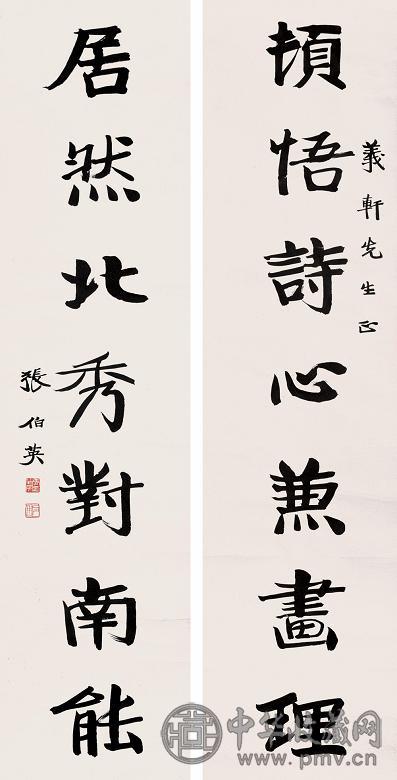 頓悟詩心兼畫理
義軒先生正
居然北秀對南能
張伯英
中华收藏网
www.pmv.cn